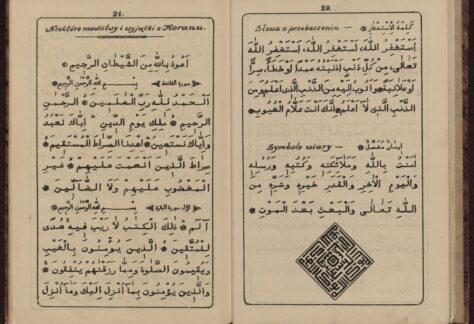 20.
Słowa o przebaczeniu — كَلِمَةُ الْاِسْتِغْفَارِ
اَسْتَغْفِرُ اللّٰهَ، اَسْتَغْفِرُ اللّٰهَ، اَسْتَغْفِرُ اللّٰهَ
تَعَالٰى مِنْ كُلِّ ذَنْبٍ اَذْنَبْتُهُ عَمْدًا اَوْ خَطَأً، سِرًّا
اَوْ عَلَانِيَةً وَاَتُوبُ اِلَيْهِ مِنَ الذَّنْبِ الَّذِى اَعْلَمُ وَمِنَ
الذَّنْبِ الَّذِى لَا اَعْلَمُ اِنَّكَ اَنْتَ عَلَّامُ الْغُيُوبِ
Symbole wiary — اِيمَانُ مُفَصَّلْ
اٰمَنْتُ بِاللّٰهِ وَمَلَآئِكَتِهِ وَكُتُبِهِ وَرُسُلِهِ
وَالْيَوْمِ الْاٰخِرِ وَالْقَدَرِ خَيْرِهِ وَشَرِّهِ مِنَ
اللّٰهِ تَعَالٰى وَالْبَعْثِ بَعْدَ الْمَوْتِ
21.
Niektóre modlitwy i wyjątki z Koranu.
اَعُوذُ بِاللّٰهِ مِنَ الشَّيْطَانِ الرَّجِيمِ
سورة الفاتحة بِسْمِ اللّٰهِ الرَّحْمٰنِ الرَّحِيمِ
اَلْحَمْدُ لِلّٰهِ رَبِّ الْعٰلَمِينَ الرَّحْمٰنِ
الرَّحِيمِ مٰلِكِ يَوْمِ الدِّينِ اِيَّاكَ نَعْبُدُ
وَاِيَّاكَ نَسْتَعِينُ اِهْدِنَا الصِّرَاطَ الْمُسْتَقِيمَ
صِرَاطَ الَّذِينَ اَنْعَمْتَ عَلَيْهِمْ غَيْرِ
الْمَغْضُوبِ عَلَيْهِمْ وَلَا الضَّآلِّينَ
اول سورة البقرة بِسْمِ اللّٰهِ الرَّحْمٰنِ الرَّحِيمِ
الٓمٓ ذٰلِكَ الْكِتٰبُ لَا رَيْبَ فِيهِ هُدًى
لِلْمُتَّقِينَ الَّذِينَ يُؤْمِنُونَ بِالْغَيْبِ
وَيُقِيمُونَ الصَّلٰوةَ وَمِمَّا رَزَقْنٰهُمْ يُنْفِقُونَ
وَالَّذِينَ يُؤْمِنُونَ بِمَآ اُنْزِلَ اِلَيْكَ وَمَآ اُنْزِلَ